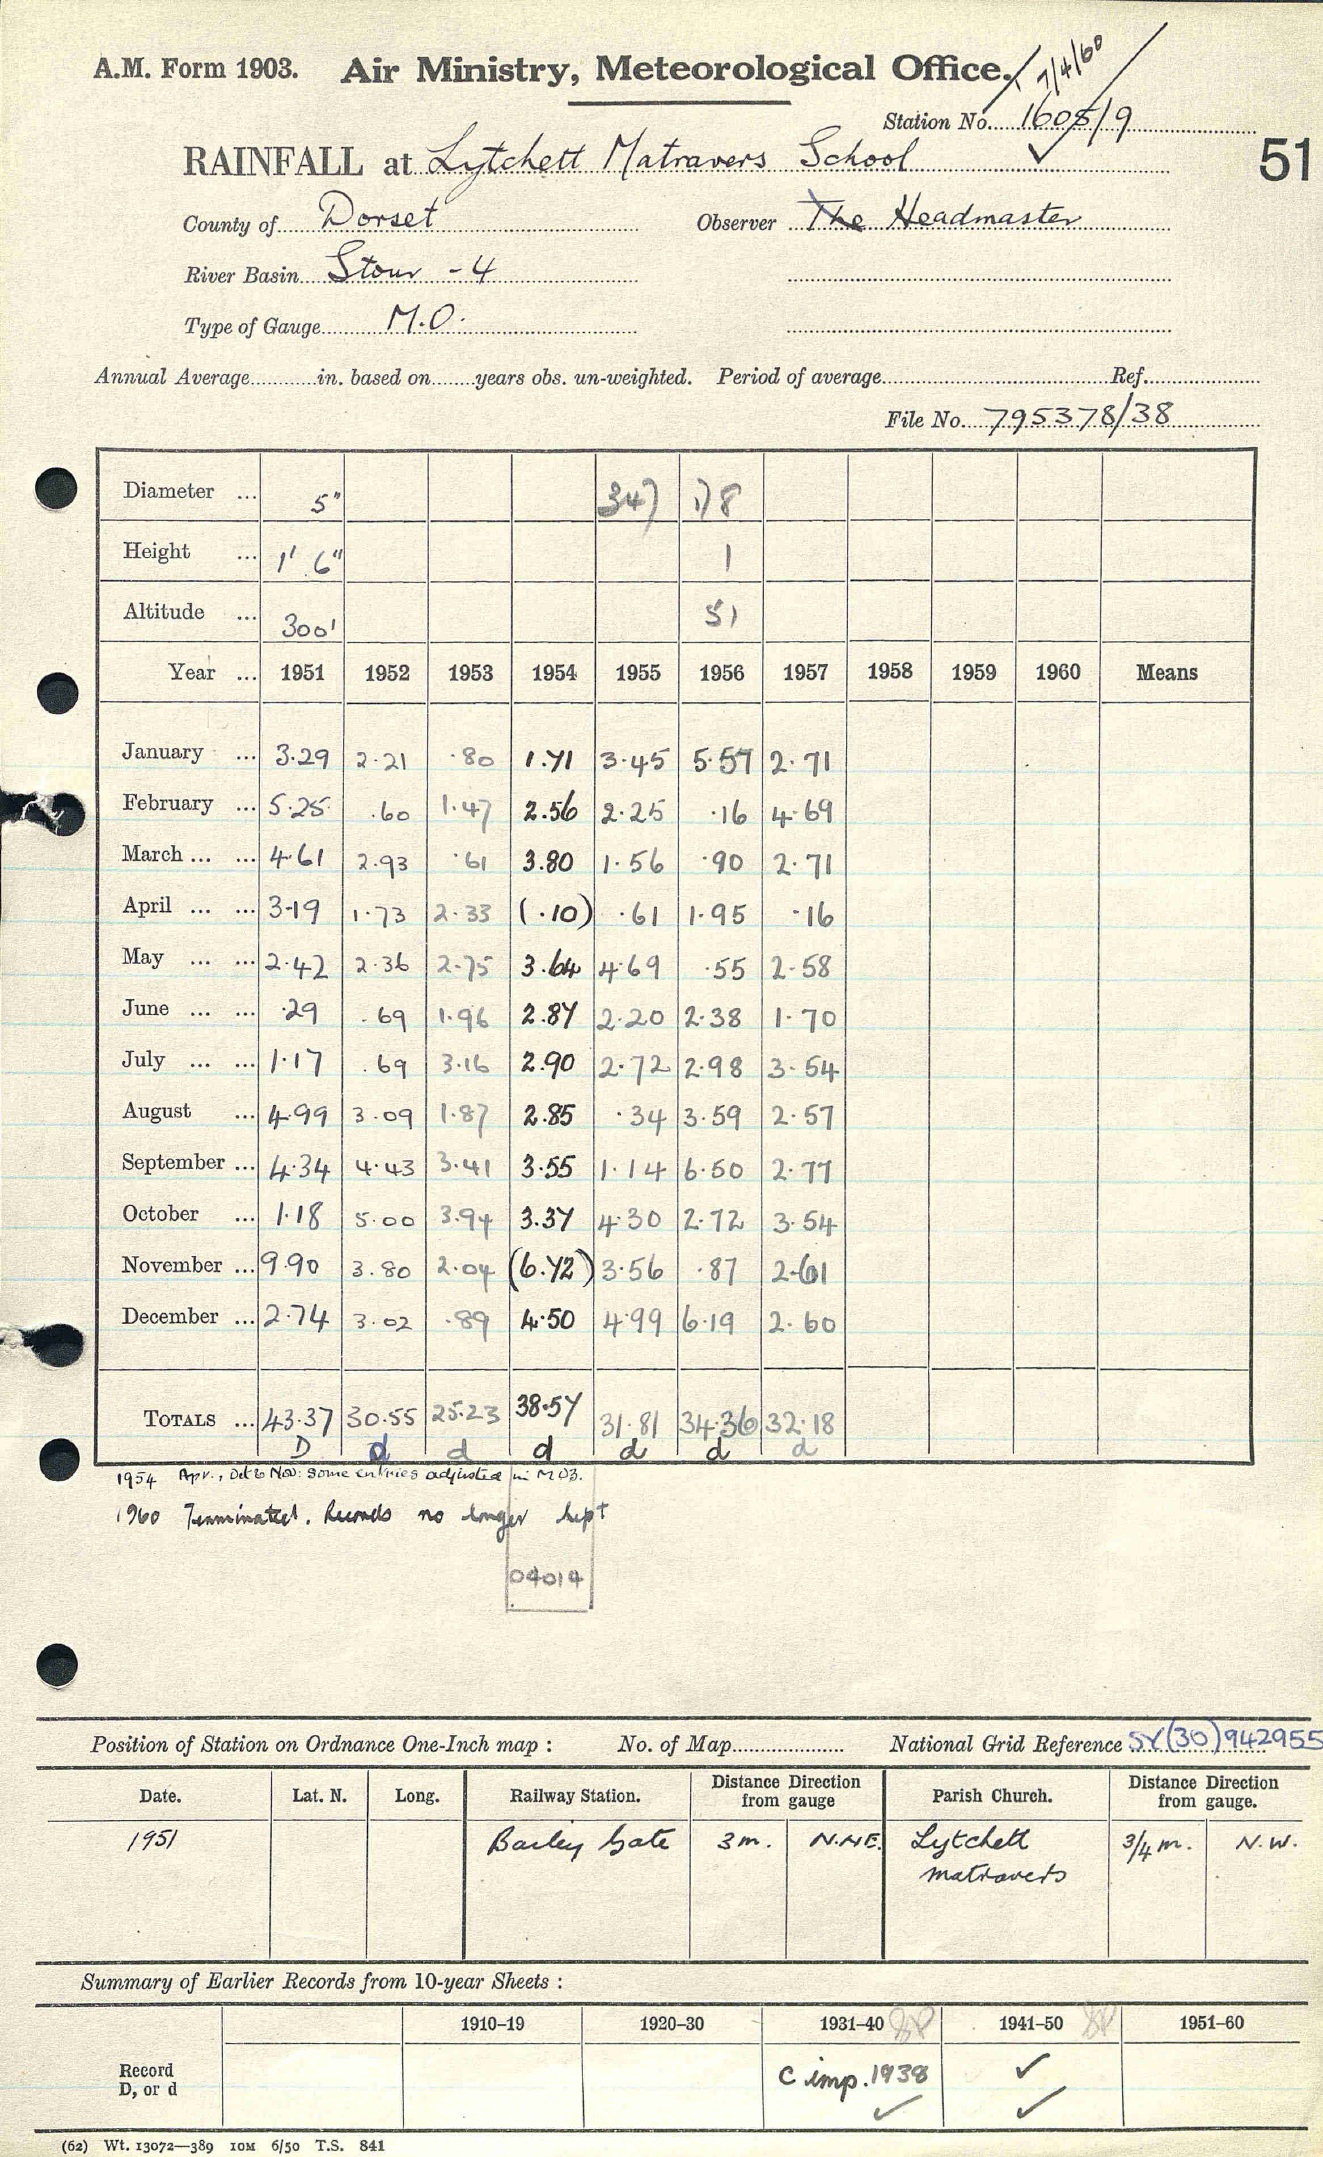 A.M. Form 1903. Air Ministry, Meteorological Office. 7/4/60
Station No. 1605/9
RAINFALL at Lytchett Matravers School 51
County of Dorset Observer The Headmaster
River Basin Stour - 4
Type of Gauge M.O.
Annual Average in. based on years obs. un-weighted. Period of average Ref.
File No. 795378/38
Diameter ... 5" 347) 1)8
Height ... 1' 6" 1
Altitude ... 300' 51
Year ... 1951 1952 1953 1954 1955 1956 1957 1958 1959 1960 Means
January ... 3.29 2.21 .80 1.71 3.45 5.57 2.71
February ... 5.25 .60 1.47 2.56 2.25 .16 4.69
March ... ... 4.61 2.93 .61 3.80 1.56 .90 2.71
April ... ... 3.19 1.73 2.33 (.10) .61 1.95 .16
May ... ... 2.42 2.36 2.75 3.64 4.69 .55 2.58
June ... ... .29 .69 1.96 2.87 2.20 2.38 1.70
July ... ... 1.17 .69 3.16 2.90 2.72 2.98 3.54
August ... 4.99 3.09 1.87 2.85 .34 3.59 2.57
September ... 4.34 4.43 3.41 3.55 1.14 6.50 2.77
October ... 1.18 5.00 3.94 3.37 4.30 2.72 3.54
November ... 9.90 3.80 2.04 (6.72) 3.56 .87 2.61
December ... 2.74 3.02 .89 4.50 4.99 6.19 2.60
TOTALS ... 43.37 30.55 25.23 38.57 31.81 34.36 32.18
D d d d d d d
1954 Apr., Oct & Nov: some entries adjusted in MO3.
1960 Terminated. Records no longer kept
04014
Position of Station on Ordnance One-Inch map : No. of Map National Grid Reference SY(30)942955
Date. Lat. N. Long. Railway Station. Distance from gauge Direction Parish Church. Distance from gauge. Direction
1951 Bailey Gate 3 m. N.NE. Lytchett 3/4 m. N.W.
Matravers
Summary of Earlier Records from 10-year Sheets :
1910–19 1920–30 1931–40 1941–50 1951–60
Record
D, or d
C imp. 1938 ✓
✓ ✓
(62) Wt. 13072—389 10M 6/50 T.S. 841